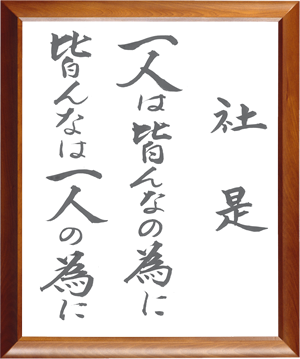 社是
一人は皆んなの為に
皆んなは一人の為に